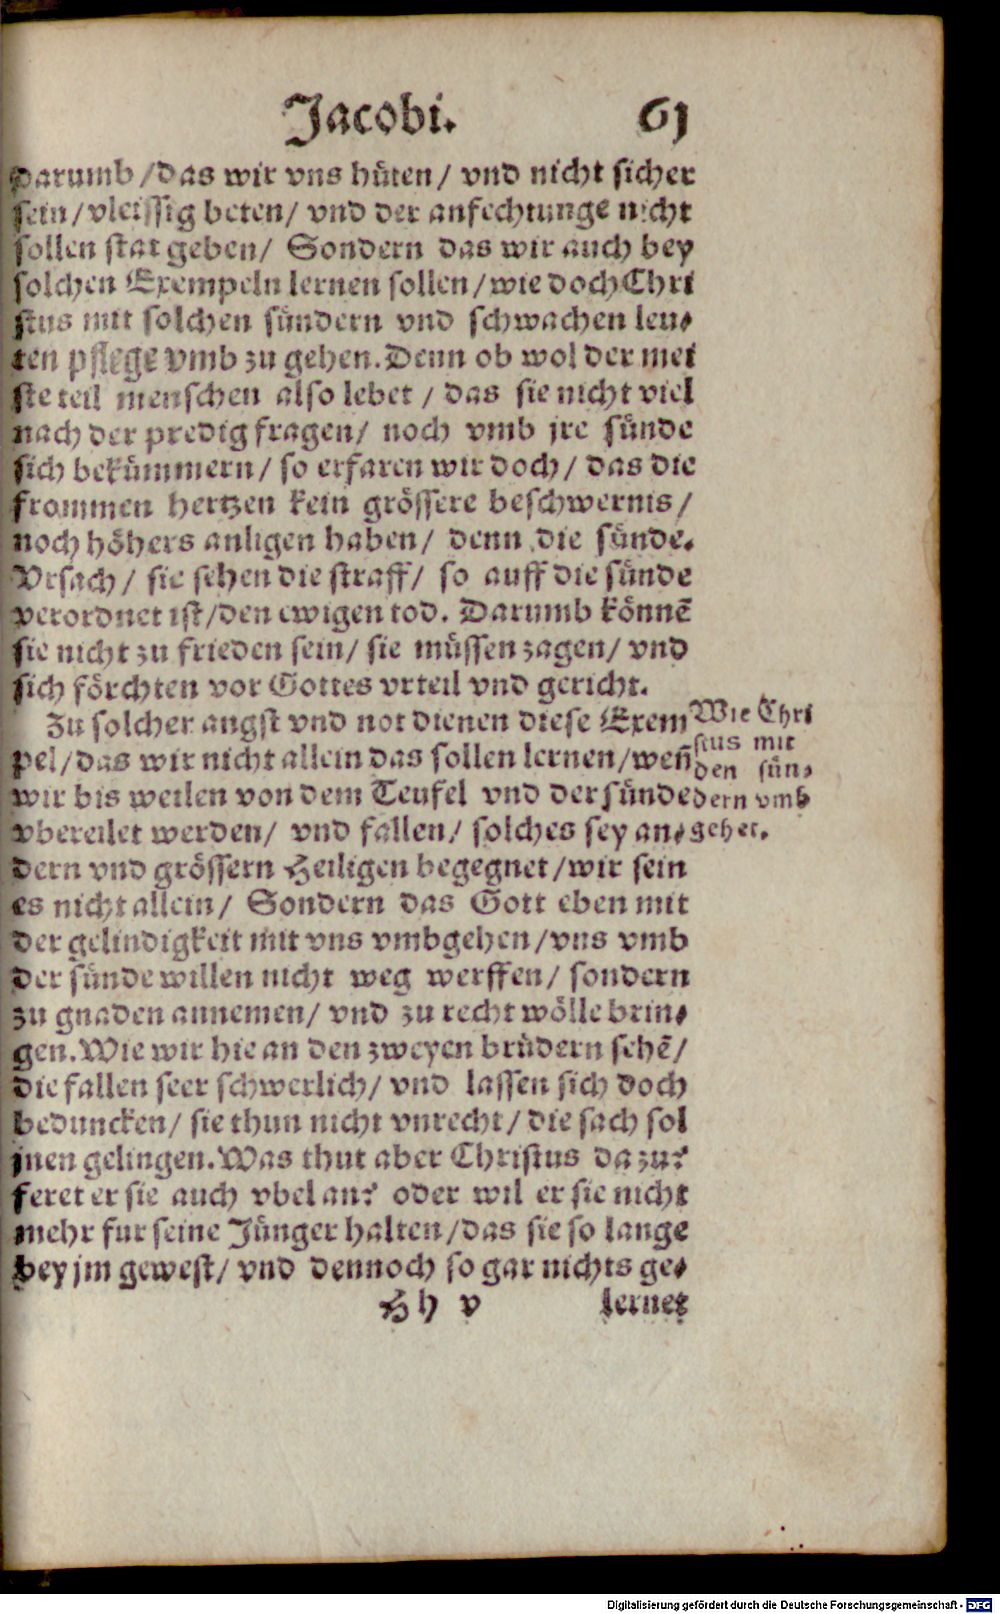 Jacobi. 61
Darumb / das wir vns hüten / vnd nicht sicher
sein / vleissig beten / vnd der anfechtunge nicht
sollen stat geben / Sondern das wir auch bey
solchen Exempeln lernen sollen / wie doch Chri
stus mit solchen sündern vnd schwachen leu⸗
ten pflege vmb zu gehen. Denn ob wol der mei
ste teil menschen also lebet / das sie nicht viel
nach der predig fragen / noch vmb jre sünde
sich bekümmern / so erfaren wir doch / das die
frommen hertzen kein grössere beschwernis /
noch höhers anligen haben / denn die sünde.
Vrsach / sie sehen die straff / so auff die sünde
verordnet ist / den ewigen tod. Darumb könnē
sie nicht zu frieden sein / sie müssen zagen / vnd
sich förchten vor Gottes vrteil vnd gericht.
Zu solcher angst vnd not dienen diese Exem
pel / das wir nicht allein das sollen lernen / weñ
wir bis weilen von dem Teufel vnd der sünde
vbereilet werden / vnd fallen / solches sey an⸗
dern vnd grössern Heiligen begegnet / wir sein
es nicht allein / Sondern das Gott eben mit
der gelindigkeit mit vns vmbgehen / vns vmb
der sünde willen nicht weg werffen / sondern
zu gnaden annemen / vnd zu recht wölle brin⸗
gen. Wie wir hie an den zweyen brüdern sehē /
die fallen seer schwerlich / vnd lassen sich doch
beduncken / sie thun nicht vnrecht / die sach sol
jnen gelingen. Was thut aber Christus dazu?
feret er sie auch vbel an? oder wil er sie nicht
mehr fur seine Jünger halten / das sie so lange
bey jm gewest / vnd dennoch so gar nichts ge⸗
Hh v lernet
Wie Chri
stus mit
den sün⸗
dern vmb
gehet.
Digitalisierung gefördert durch die Deutsche Forschungsgemeinschaft - DFG